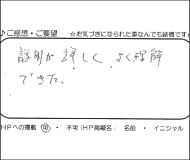 ♪ご感想・ご要望 ☆お気づきになられた事なんでも結構です☆
説明が詳しく、よく理解
できた。
HPへの掲載 可・不可(HP掲載名: 名前・イニシャル